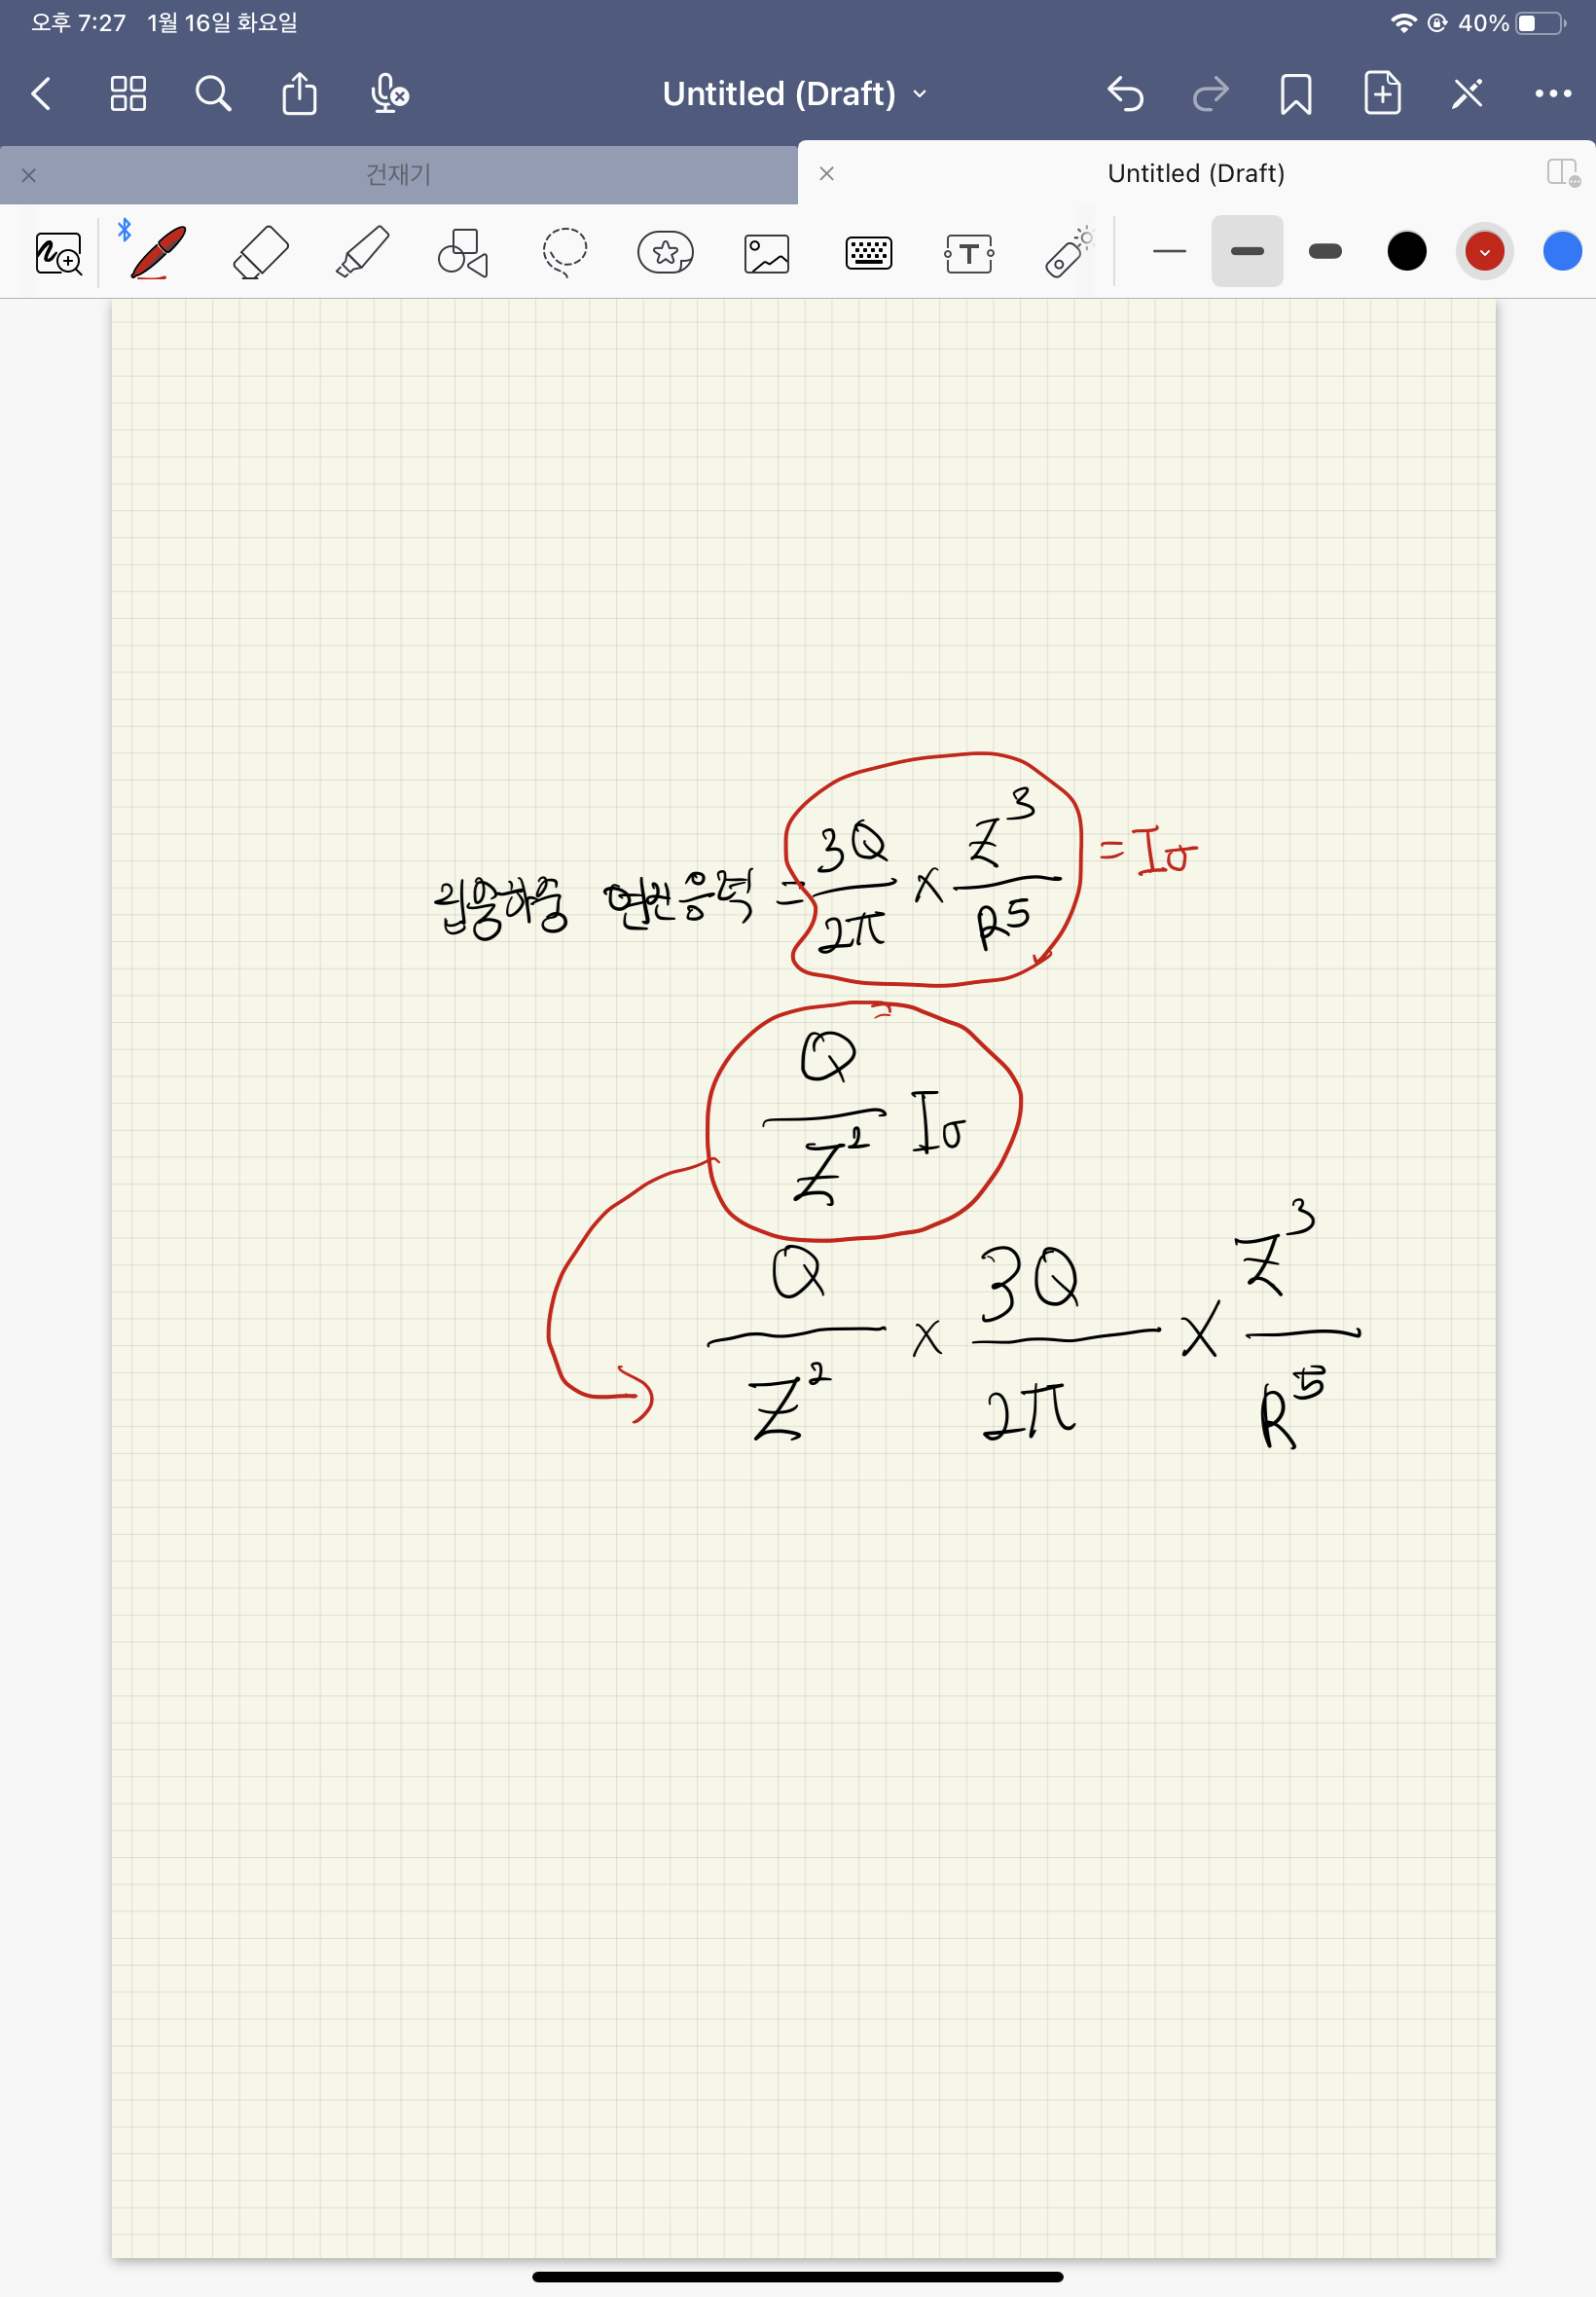 오후 7:27 1월 16일 화요일 40%
Untitled (Draft)
건재기 Untitled (Draft)
T
집중하중 연직응력 = 3Q/2π × Z³/R⁵ = Iσ
=
Q/Z² Iσ
Q/Z² × 3Q/2π × Z³/R⁵